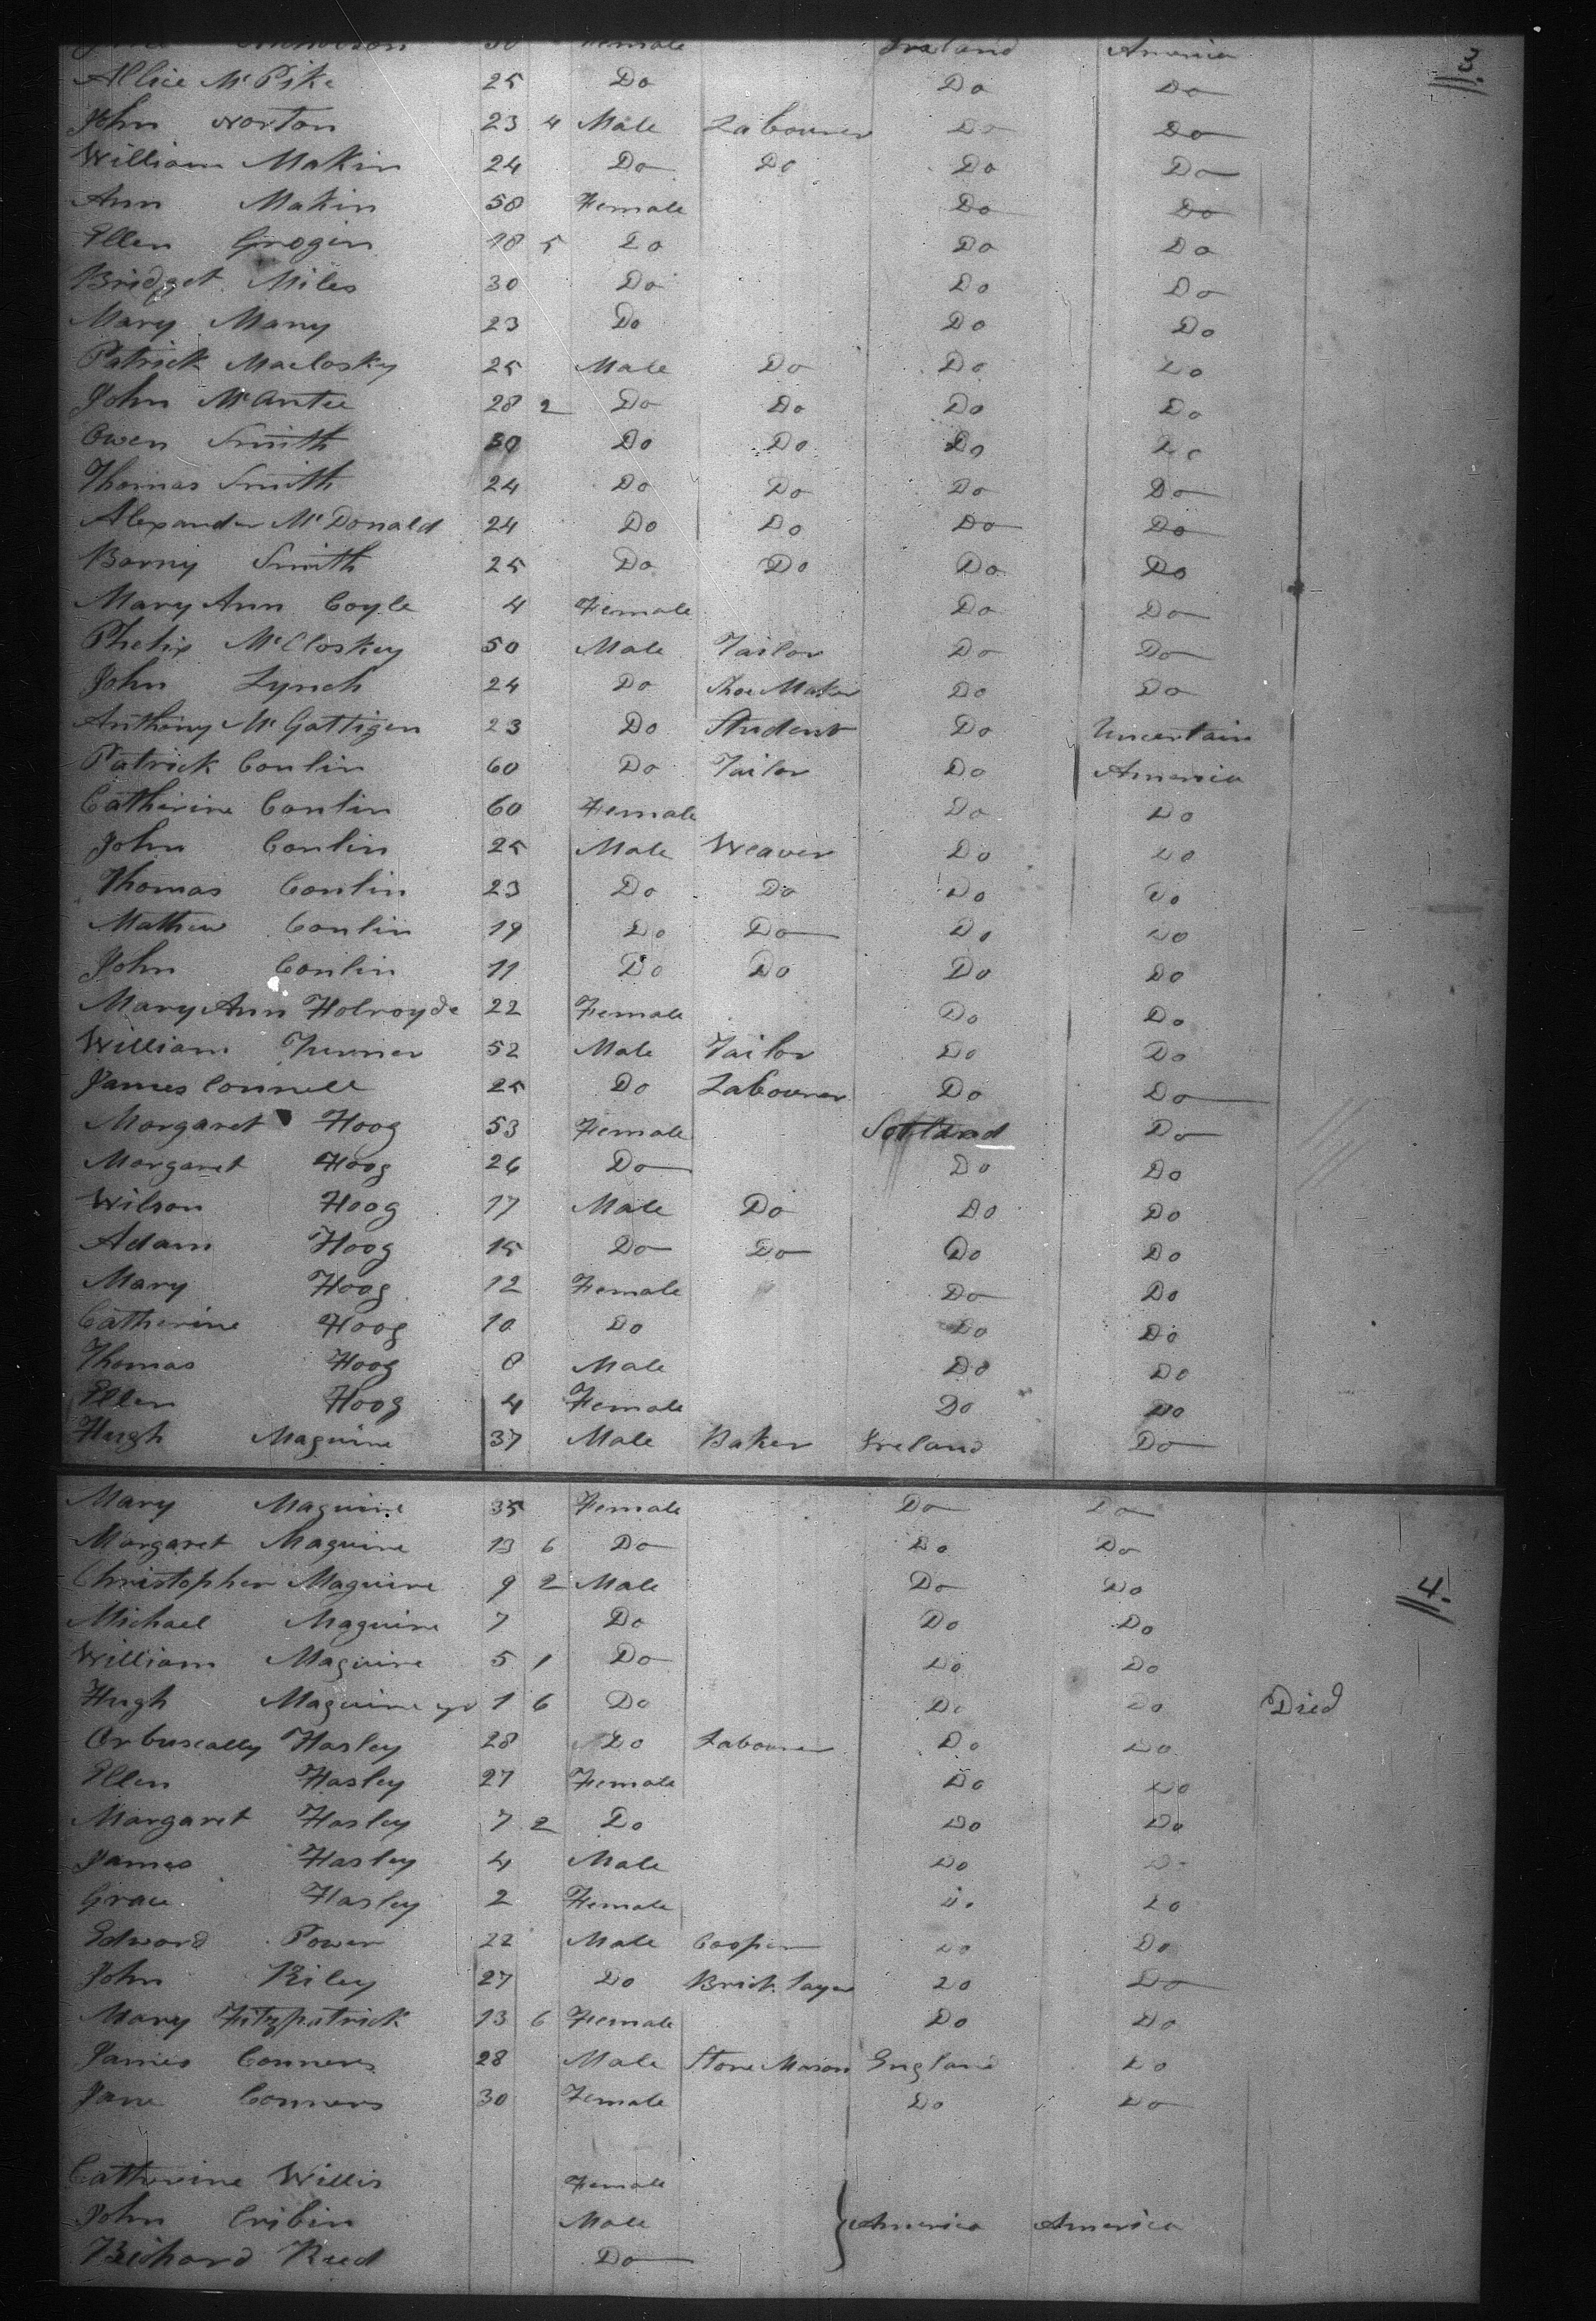 30 Female Ireland America
3.
Allice McPike 25 Do Do Do
John Norton 23 4 Male Labourer Do Do
William Makin 24 Do Do Do Do
Ann Makin 50 Female Do Do
Ellen Grogin 18 5 Do Do Do
Bridget Miles 30 Do Do Do
Mary Many 23 Do Do Do
Patrick Maclosky 25 Male Do Do Do
John McAntee 28 2 Do Do Do Do
Owen Smith 30 Do Do Do Do
Thomas Smith 24 Do Do Do Do
Alexander McDonald 24 Do Do Do Do
Barny Smith 25 Do Do Do Do
Mary Ann Coyle 4 Female Do Do
Phelix McCloskey 50 Male Tailor Do Do
John Lynch 24 Do Shoe Maker Do Do
Anthony McGattigen 23 Do Student Do Uncertain
Patrick Conlin 60 Do Tailor Do America
Catherine Conlin 60 Female Do Do
John Conlin 25 Male Weaver Do Do
Thomas Conlin 23 Do Do Do Do
Mathew Conlin 19 Do Do Do Do
John Conlin 11 Do Do Do Do
Mary Ann Holroyde 22 Female Do Do
William 52 Male Tailor Do Do
James Connell 25 Do Labourer Do Do
Margaret Hoog 53 Female Scotland Do
Margaret Hoog 26 Do Do Do
Wilson Hoog 17 Male Do Do Do
Adam Hoog 15 Do Do Do Do
Mary Hoog 12 Female Do Do
Catherine Hoog 10 Do Do Do
Thomas Hoog 8 Male Do Do
Ellen Hoog 4 Female Do Do
Hugh Maguire 37 Male Baker Ireland Do
Mary Maguire 35 Female Do Do
Margaret Maguire 13 6 Do Do Do
Christopher Maguire 9 2 Male Do Do
4.
Michael Maguire 7 Do Do Do
William Maguire 5 1 Do Do Do
Hugh Maguire 1 6 Do Do Do Died
Hasley 28 Do Labourer Do Do
Ellen Hasley 27 Female Do Do
Margaret Hasley 7 2 Do Do Do
James Hasley 4 Male Do Do
Grace Hasley 2 Female Do Do
Edward Power 22 Male Cooper Do Do
John Riley 27 Do Brick layer Do Do
Mary Fitzpatrick 13 6 Female Do Do
James Conners 28 Male Stone Mason England Do
Jane Conners 30 Female Do Do
Catherine Willis Female
John Cribin Male America America
Richard Reed Do